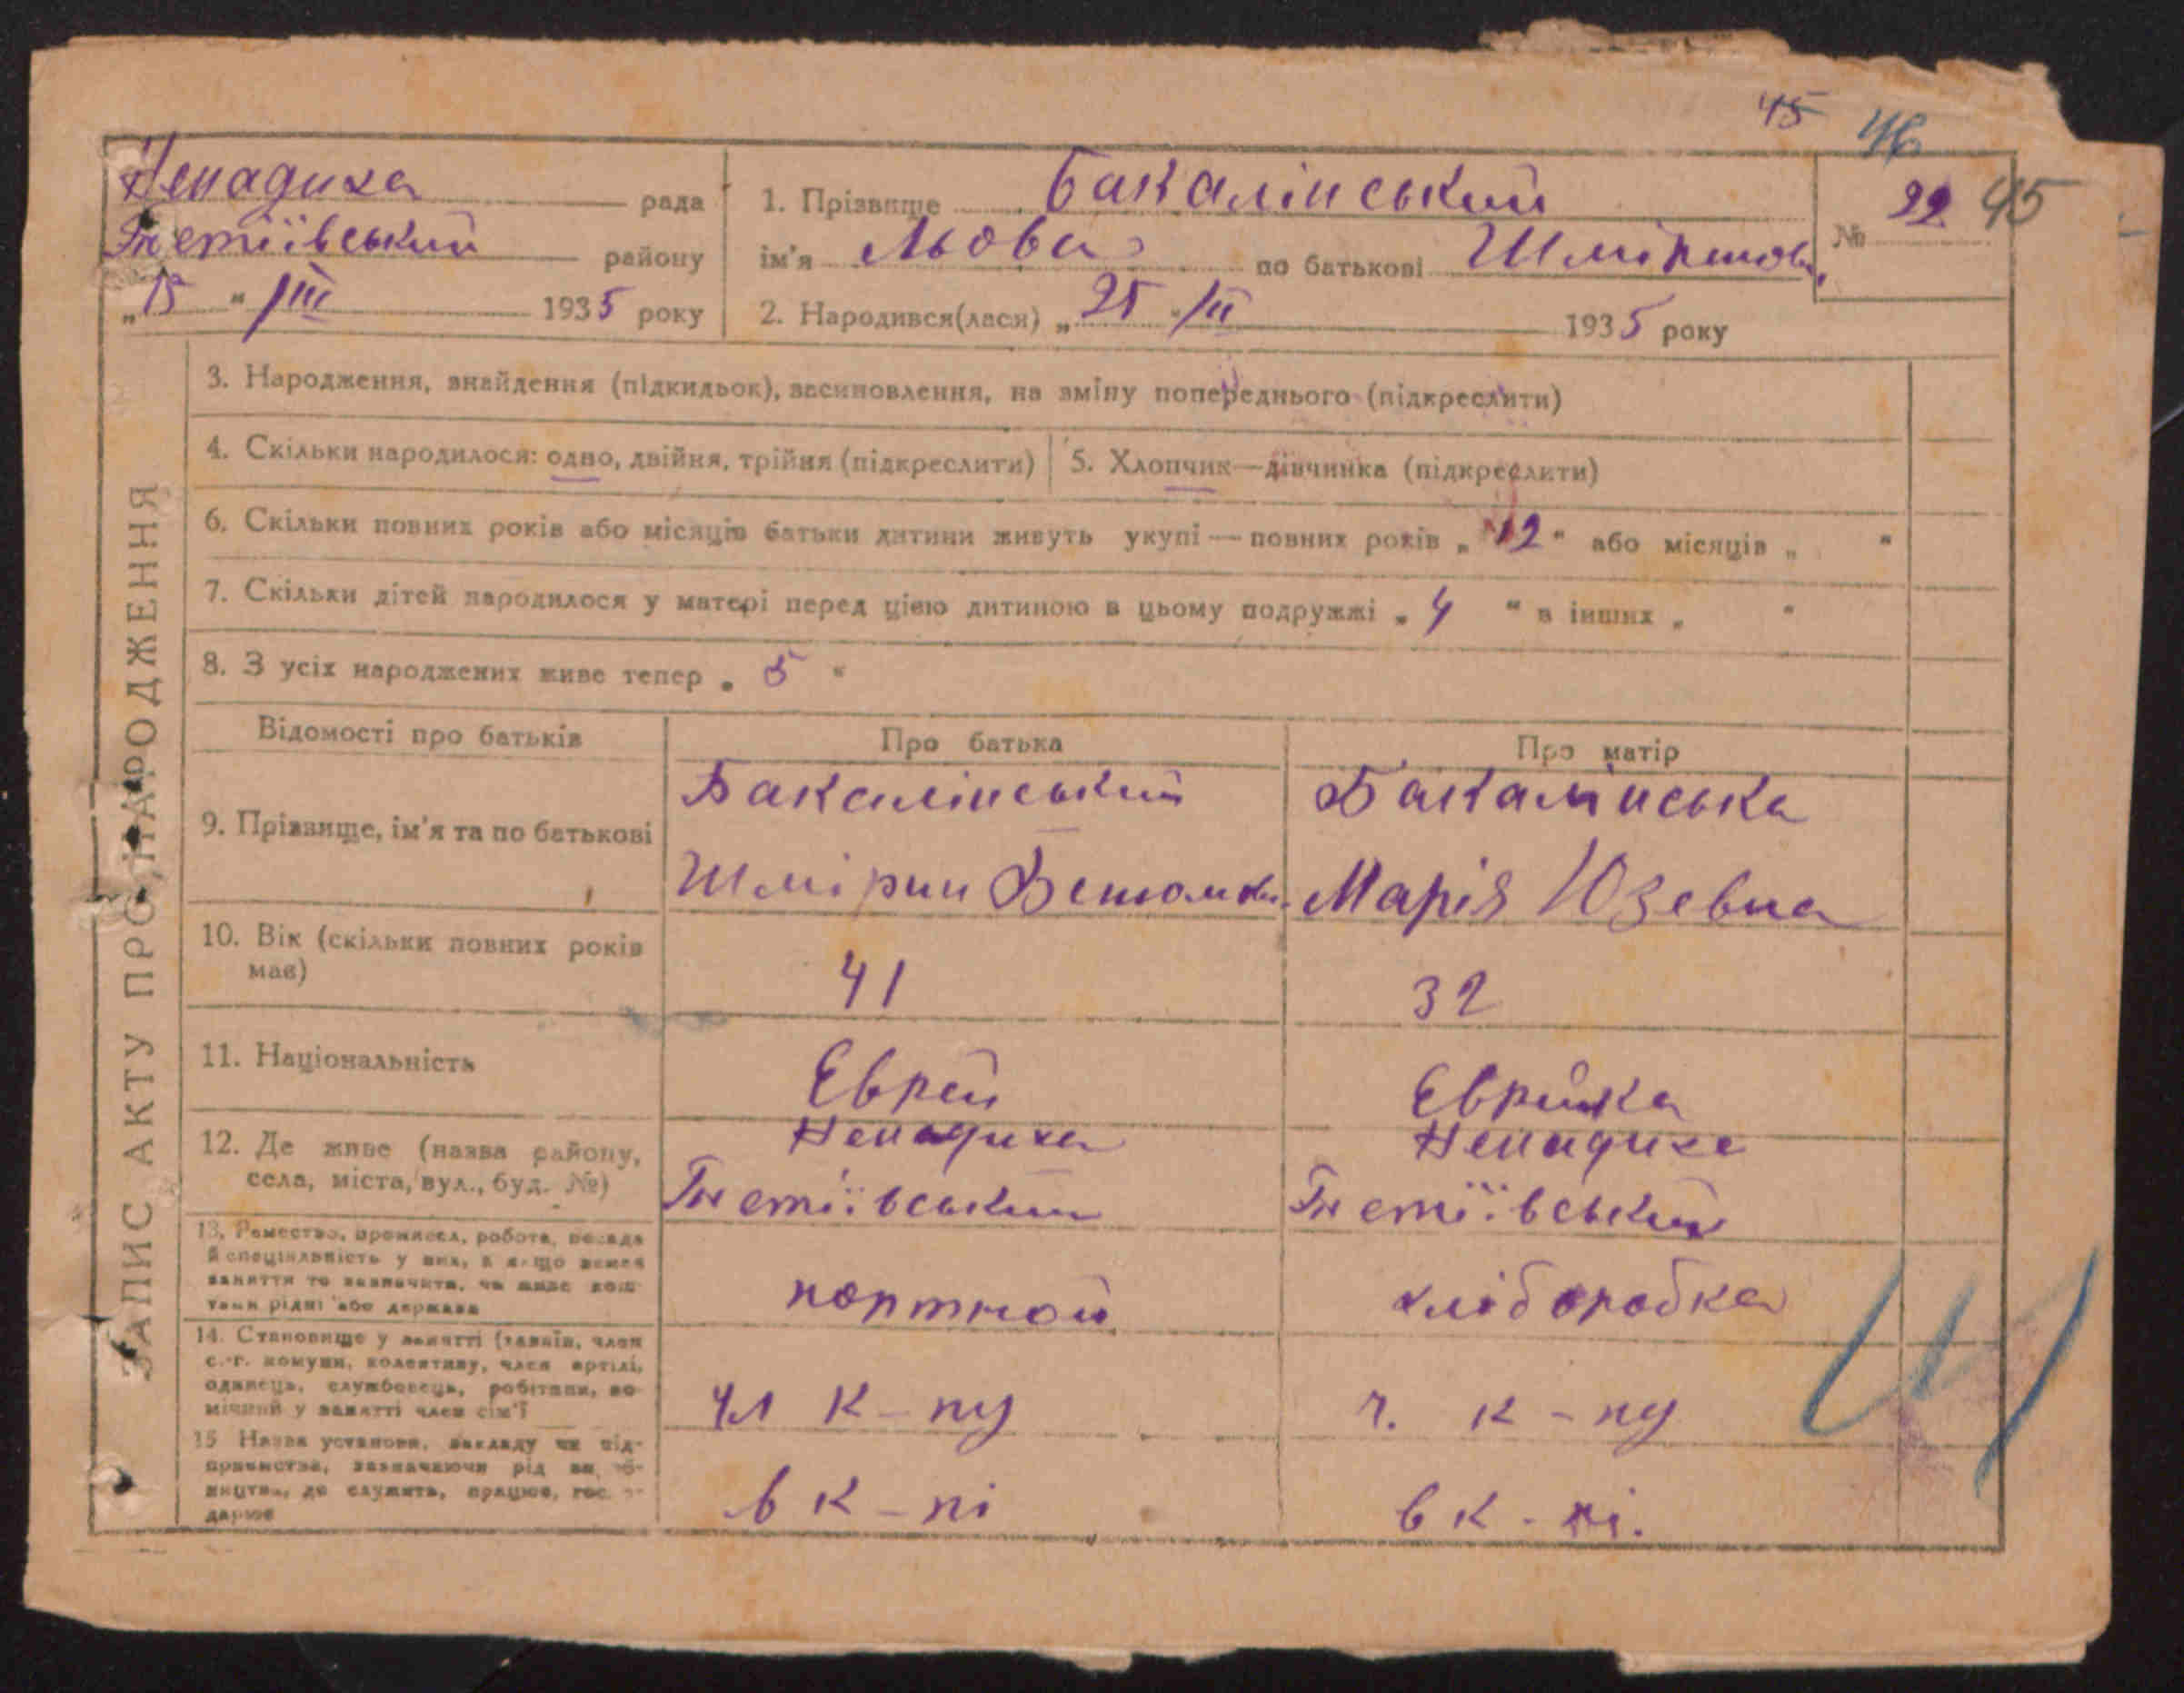 45 46
Ненадиха рада
Тетіївський районy
"15" /III 1935 року
1. Прізвище Бакалінський
ім'я Льова по батькові
№ 22 45
2. Народився(лася) „25" /II 1935 року
ЗАПИС АКТУ ПРО НАРОДЖЕННЯ
3. Народження, знайдення (підкидьок), засиновлення, на зміну попереднього (підкреслити)
4. Скільки народилося: одно, двійня, трійня (підкреслити) 5. Хлопчик—дівчинка (підкреслити)
6. Скільки повних років або місяців батьки дитини живуть укупі — повних років „12" або місяців „ "
7. Скільки дітей народилося у матері перед цією дитиною в цьому подружжі „4" в інших „ "
8. З усіх народжених живе тепер „5"
Відомості про батьків Про батька Про матір
9. Прізвище, ім'я та по батькові
Бакалінський
Бакалінська
Марія Юзевна
10. Вік (скільки повних років має)
41 32
11. Національність
Еврей Еврейка
12. Де живе (назва району, села, міста, вул., буд. №)
Ненадиха Ненадиха
Тетіївський Тетіївський
13. Ремество, промисел, робота, посада
й спеціяльність у них, а якщо немає
заняття то зазначити, чи живе кош-
тами рідні або держави
портной хліборобка
14. Становище у занятті (хазяїн, член
с.-г. комуни, колективу, член артілі,
одинець, службовець, робітник, по-
мічний у занятті член сім'ї
чл к-пу ч. к-пу
15 Назва установи, закладу чи під-
приємства, зазначаючи рід
де служить, працює,
в к-пі в к-пі.